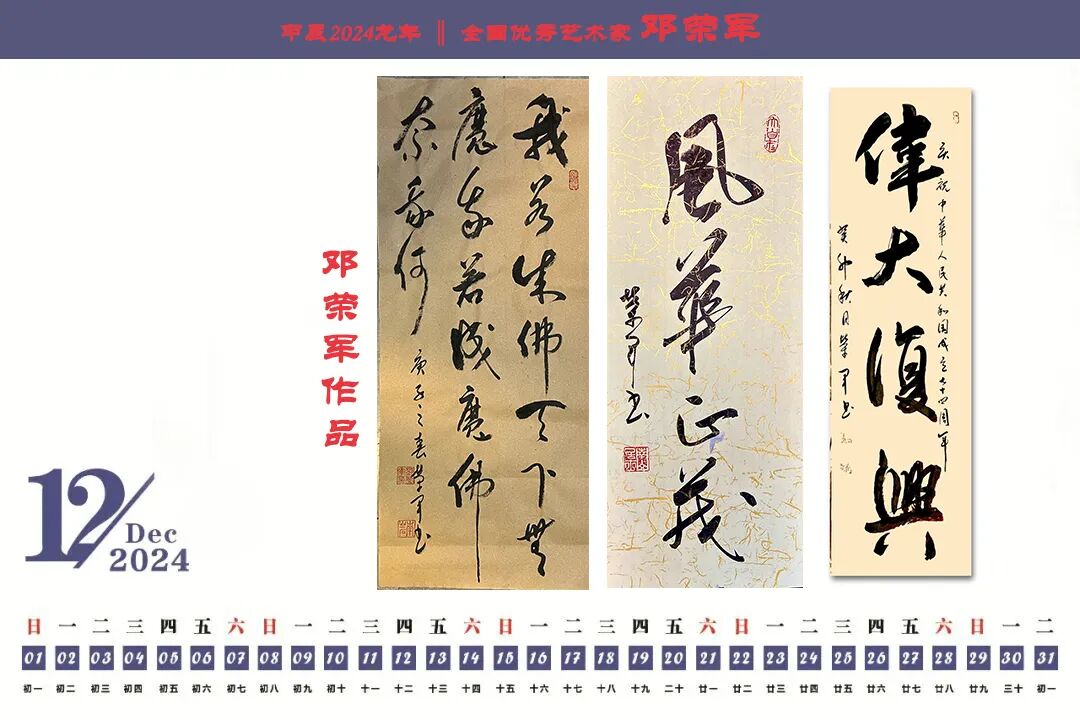 甲辰2024龙年 ‖ 全国优秀艺术家 邓荣军
邓荣军作品
我若成佛天下无
魔我若成魔佛
奈我何
庚子之春荣军书
風華正茂
荣军书
庆祝中华人民共和国成立七十四周年
偉大復興
癸卯秋月荣军书
12/Dec
2024
日 一 二 三 四 五 六 日 一 二 三 四 五 六 日 一 二 三 四 五 六 日 一 二 三 四 五 六 日 一 二
01 02 03 04 05 06 07 08 09 10 11 12 13 14 15 16 17 18 19 20 21 22 23 24 25 26 27 28 29 30 31
初一 初二 初三 初四 初五 初六 初七 初八 初九 初十 十一 十二 十三 十四 十五 十六 十七 十八 十九 二十 廿一 廿二 廿三 廿四 廿五 廿六 廿七 廿八 廿九 三十 初一